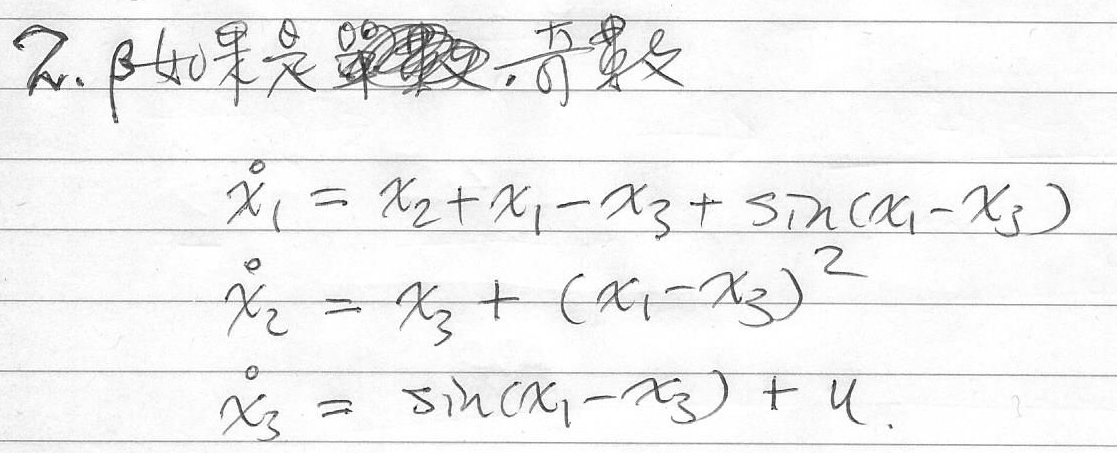 2. β如果是奇數
ẋ₁ = x₂ + x₁ - x₃ + sin(x₁ - x₃)
ẋ₂ = x₃ + (x₁ - x₃)²
ẋ₃ = sin(x₁ - x₃) + u.